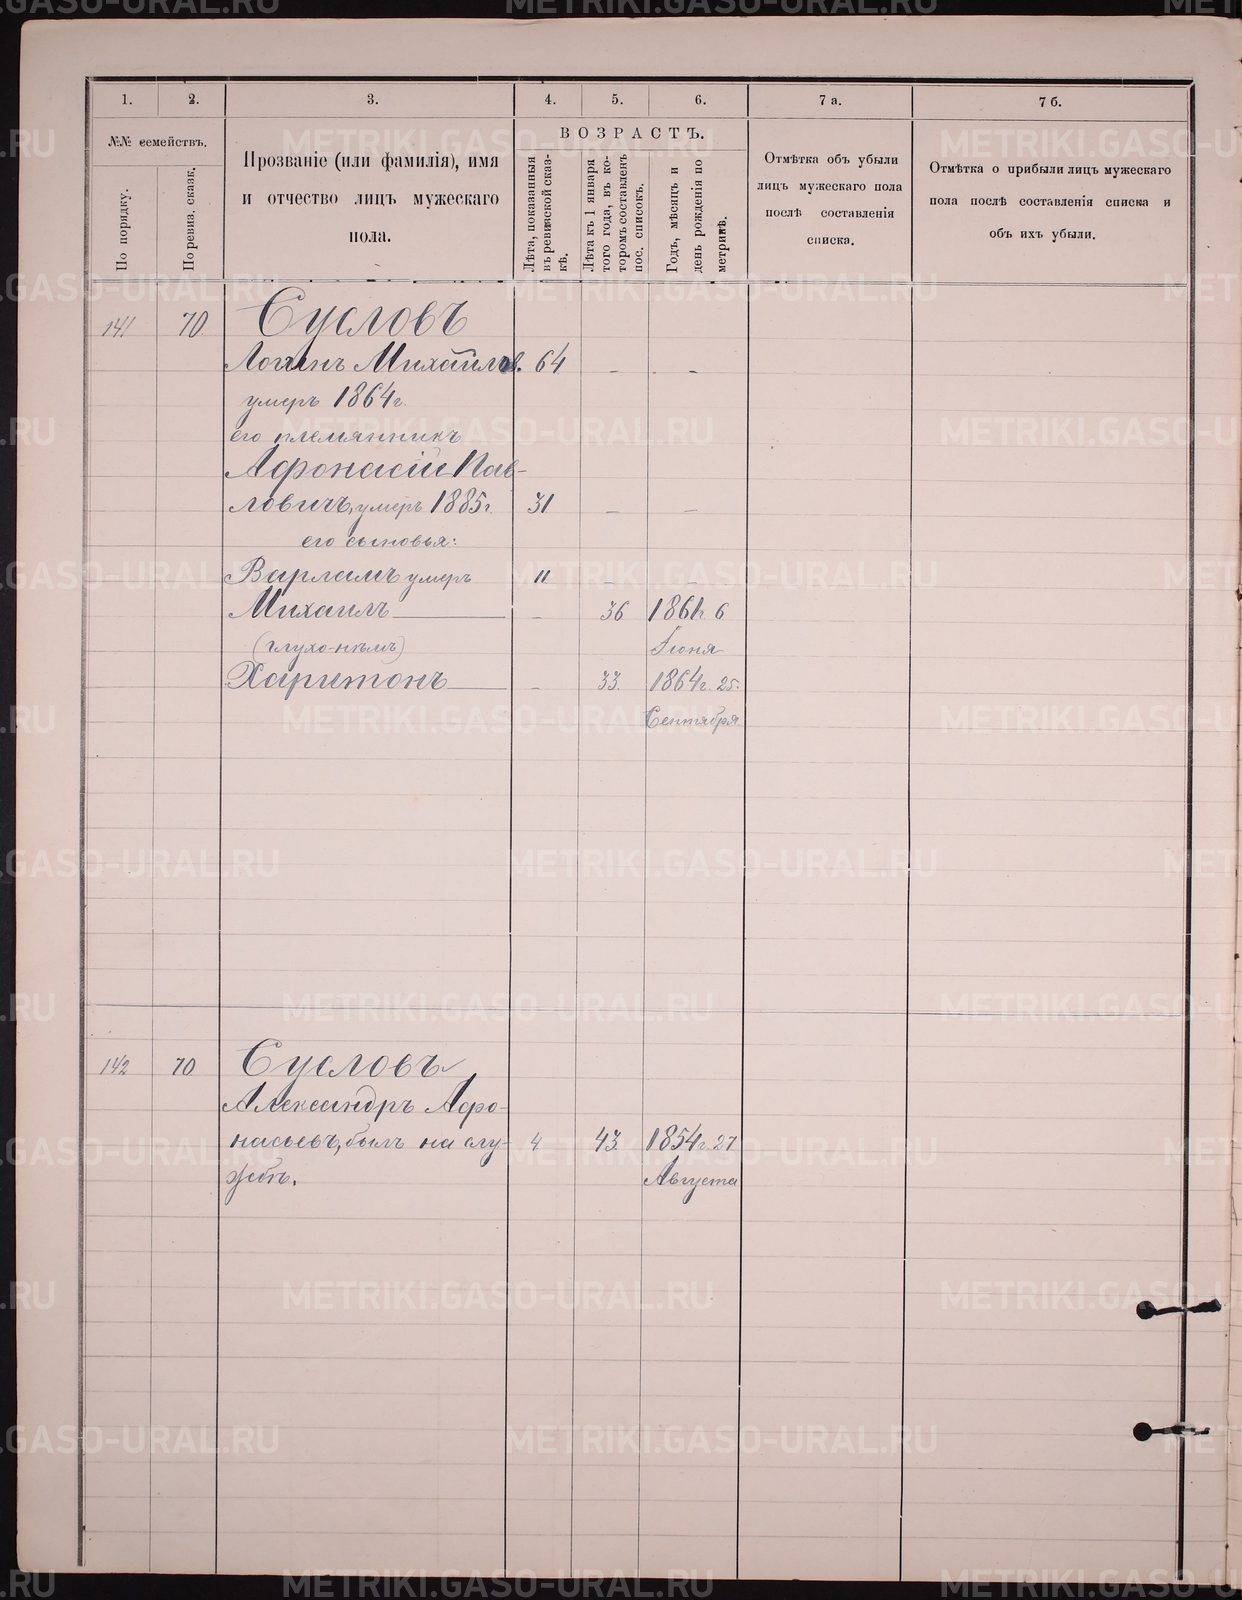 1. 2. 3. 4. 5. 6. 7 а. 7 б.
№№ семействъ.
По порядку.
По ревиз. сказк.
Прозваніе (или фамилія), имя
и отчество лицъ мужескаго
пола.
ВОЗРАСТЪ.
Лѣта, показанныя
въ ревизской сказ-
кѣ.
Лѣта къ 1 января
того года, въ ко-
торомъ составленъ
пос. списокъ.
Годъ, мѣсяцъ и
день рожденія по
метрикѣ.
Отмѣтка объ убыли
лицъ мужескаго пола
послѣ составленія
списка.
Отмѣтка о прибыли лицъ мужескаго
пола послѣ составленія списка и
объ ихъ убыли.
141 70 Сусловъ
Логинъ Михайлов. 64 – –
умеръ 1864 г.
его племянникъ
Афонасій Пав-
ловичъ, умеръ 1885 г. 31 – –
его сыновья:
Варламъ умеръ 11 – –
Михаилъ – 36 1861 г. 6
(глухо-нѣмъ) Іюня
Харитонъ – 33. 1864 г. 25.
Сентября
142 70 Сусловъ
Александръ Афо-
насьевъ, былъ на слу- 4 43. 1854 г. 27
жбѣ. Августа
METRIKI.GASO-URAL.RU